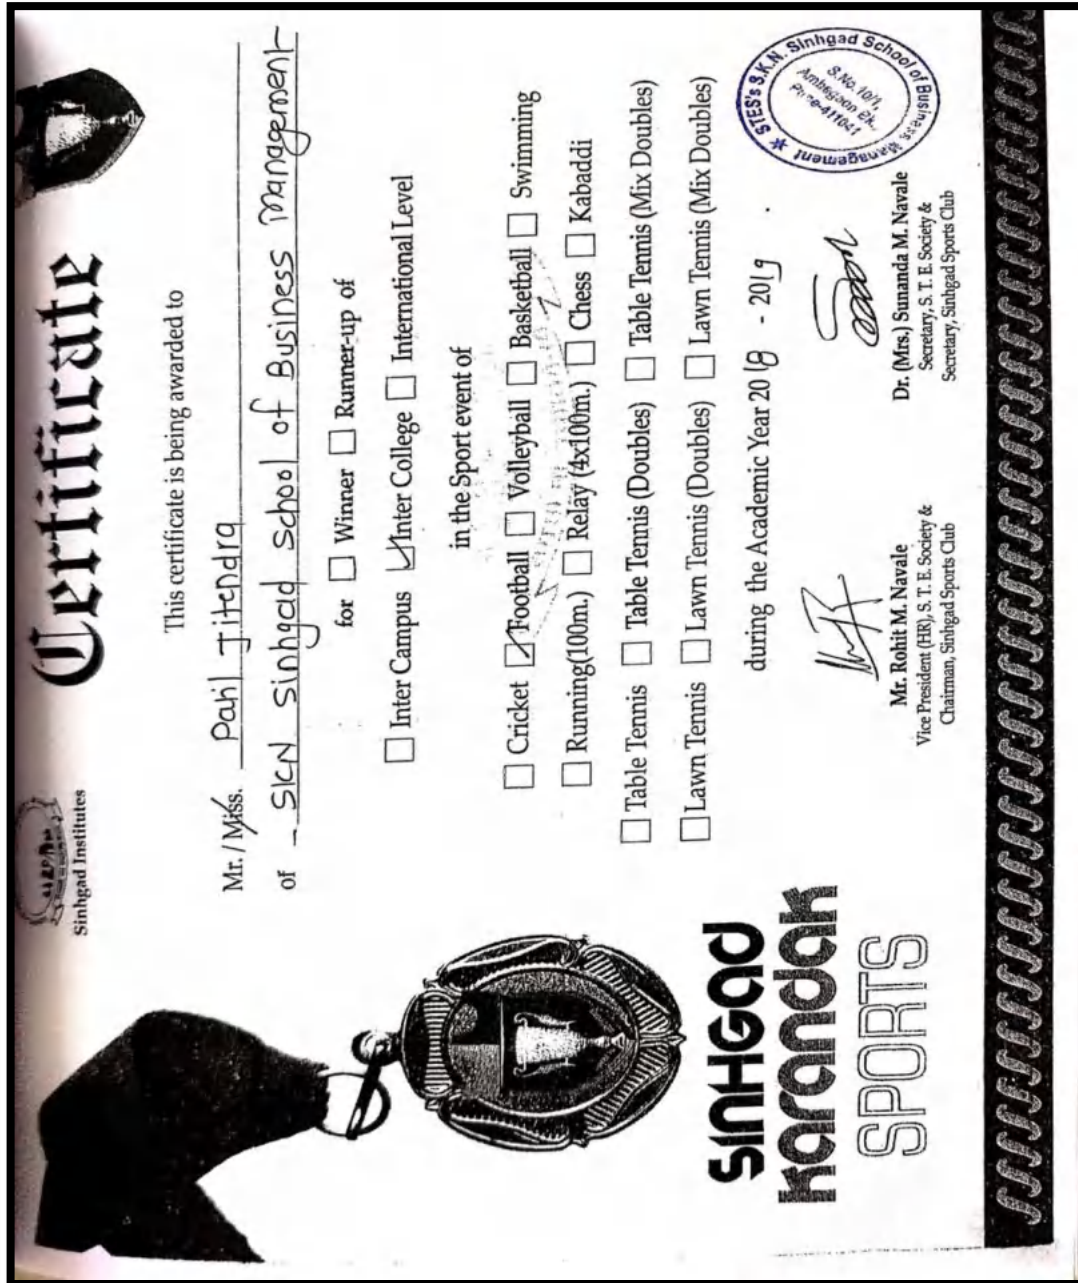 Sinhgad Institutes
Certificate
This certificate is being awarded to
Mr. / Miss. Patil Jitendra
of SKN Sinhgad School of Business Management
for ☐ Winner ☐ Runner-up of
☐ Inter Campus ☑ Inter College ☐ International Level
in the Sport event of
☐ Cricket ☑ Football ☐ Volleyball ☐ Basketball ☐ Swimming
☐ Running(100m.) ☐ Relay (4x100m.) ☐ Chess ☐ Kabaddi
☐ Table Tennis ☐ Table Tennis (Doubles) ☐ Table Tennis (Mix Doubles)
☐ Lawn Tennis ☐ Lawn Tennis (Doubles) ☐ Lawn Tennis (Mix Doubles)
during the Academic Year 2018 - 2019 .
SINHGAD
karandak
SPORTS
Mr. Rohit M. Navale
Vice President (HR), S. T. E. Society &
Chairman, Sinhgad Sports Club
Dr. (Mrs.) Sunanda M. Navale
Secretary, S. T. E. Society &
Secretary, Sinhgad Sports Club
★ STES's S.K.N. Sinhgad School of Business Management
S.No. 10/1,
Ambegaon Bk.,
Pune-411041